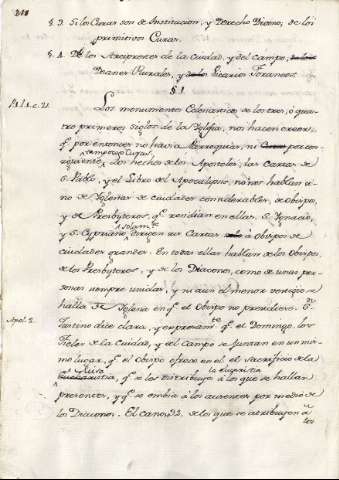 §. 3. Si los Curas son de Institucion, y Derecho Divino; de los
primitivos Curas.
§. 4. De los Arciprestes de la ciudad, y del campo,
Deanes Rurales, y Vicarios Foraneos.
§ 1
Los monumentos Eclesiasticos de los tres, ó qua-
tro primeros siglos de la Yglesia, nos hacen creer,
q.e por entonces no havia Parroquias, ni
tampoco Curas
Los hechos de los Apostoles, las Cartas de
S. Pablo, y el Libro del Apocalipsis, no nos hablan si-
no de Yglesias de ciudades considerables, de Obispos,
y de Presbyteros, q.e residian en ellas. S. Ygnacio,
solam.te
y S. Cypriano dirigen sus Cartas á Obispos de
ciudades grandes. En todas ellas hablan de los Obispos,
de los Presbyteros, y de los Diaconos, como de unas per-
sonas siempre unidas, y ni aun el menor vestigio se
halla de Yglesia en q.e el Obispo no presidiese. S.n
Apol. 2.
Justino dice clara, y expresam.te q.e el Domingo los
Fieles de la Ciudad, y del campo se juntan en un mis-
mo lugar, q.e el Obispo ofrece en el el Sacrificio de la
Misa
la Eucaristia
Eucharistia, q.e se les distribuye á los que se hallan
presentes, y q.e se embia á los ausentes por medio de
los Diaconos. El canon 32, de los que se atribuyen á
los